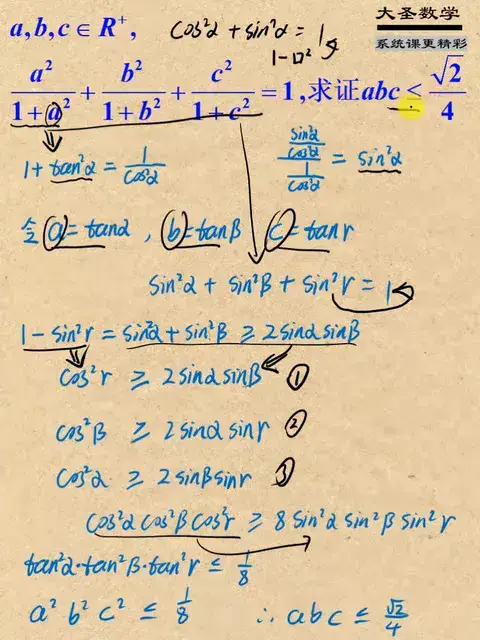 大圣数学
系统课更精彩
a,b,c∈R⁺, cos²α + sin²α = 1
1-□²
a²/(1+a²) + b²/(1+b²) + c²/(1+c²) = 1,求证abc ≤ √2/4
1+tan²α = 1/cos²α (sin²α/cos²α)/(1/cos²α) = sin²α
令 a=tanα , b=tanβ c=tanr
sin²α + sin²β + sin²r = 1
1-sin²r = sin²α + sin²β ≥ 2sinαsinβ
cos²r ≥ 2sinαsinβ ①
cos²β ≥ 2sinαsinr ②
cos²α ≥ 2sinβsinr ③
cos²αcos²βcos²r ≥ 8sin²αsin²βsin²r
tan²α·tan²β·tan²r ≤ 1/8
a²b²c² ≤ 1/8 ∴ abc ≤ √2/4